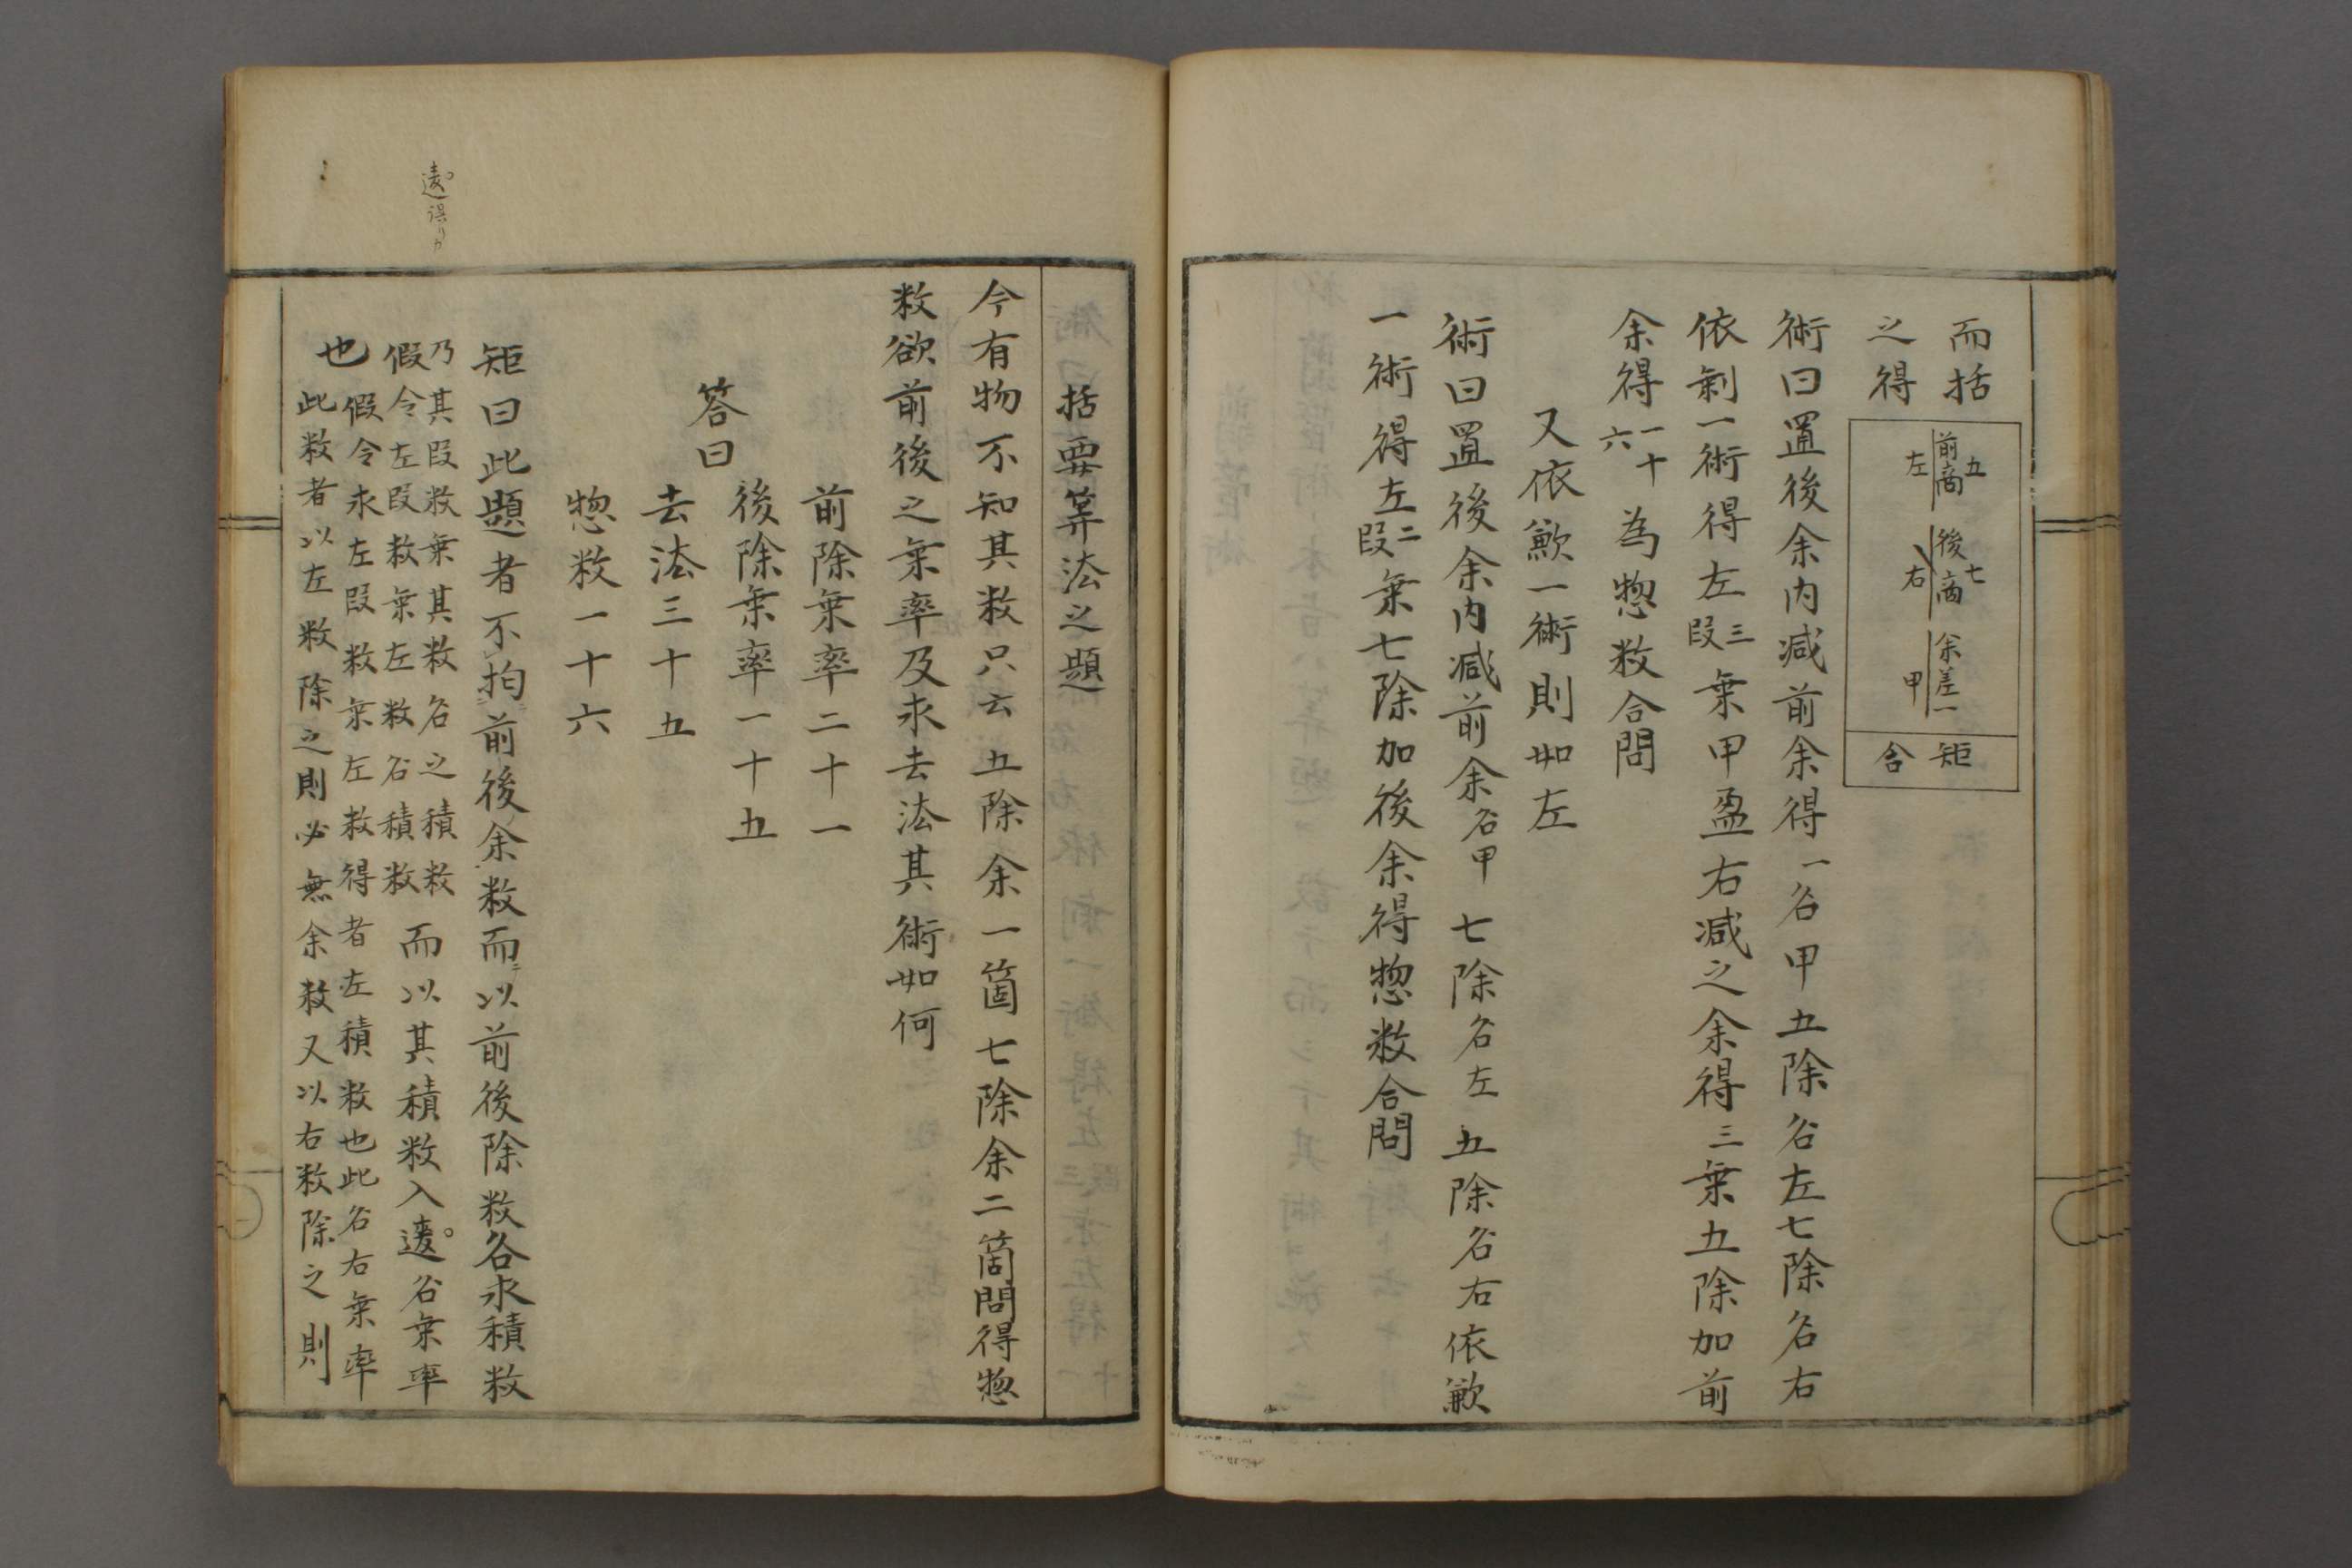 而括
之得
前商 五
左
後商 七
右
余差一
甲
矩
合
術曰置後余内減前余得一名甲五除名左七除名右
依剰一術得左三段乗甲盈右減之余得三乗五除加前
余得一十六為惣数合問
又依歉一術則如左
術曰置後余内減前余名甲七除名左五除名右依歉
一術得左二段乗七除加後余得惣数合問
括要算法之題
今有物不知其数只云五除余一箇七除余二箇問得惣
数欲前後之乗率及求去法其術如何
前除乗率二十一
答曰
後除乗率一十五
去法三十五
惣数一十六
矩曰此題者不拘前後余数而以前後除数各求積数
乃其段数乗其数名之積数
假令左段数乗左数名積数
而以其積数入遠名乗率
也
假令求左段数乗左数得者左積数也此名右乗率
此数者以左数除之則必無余数又以右数除之則
遠誤リカ